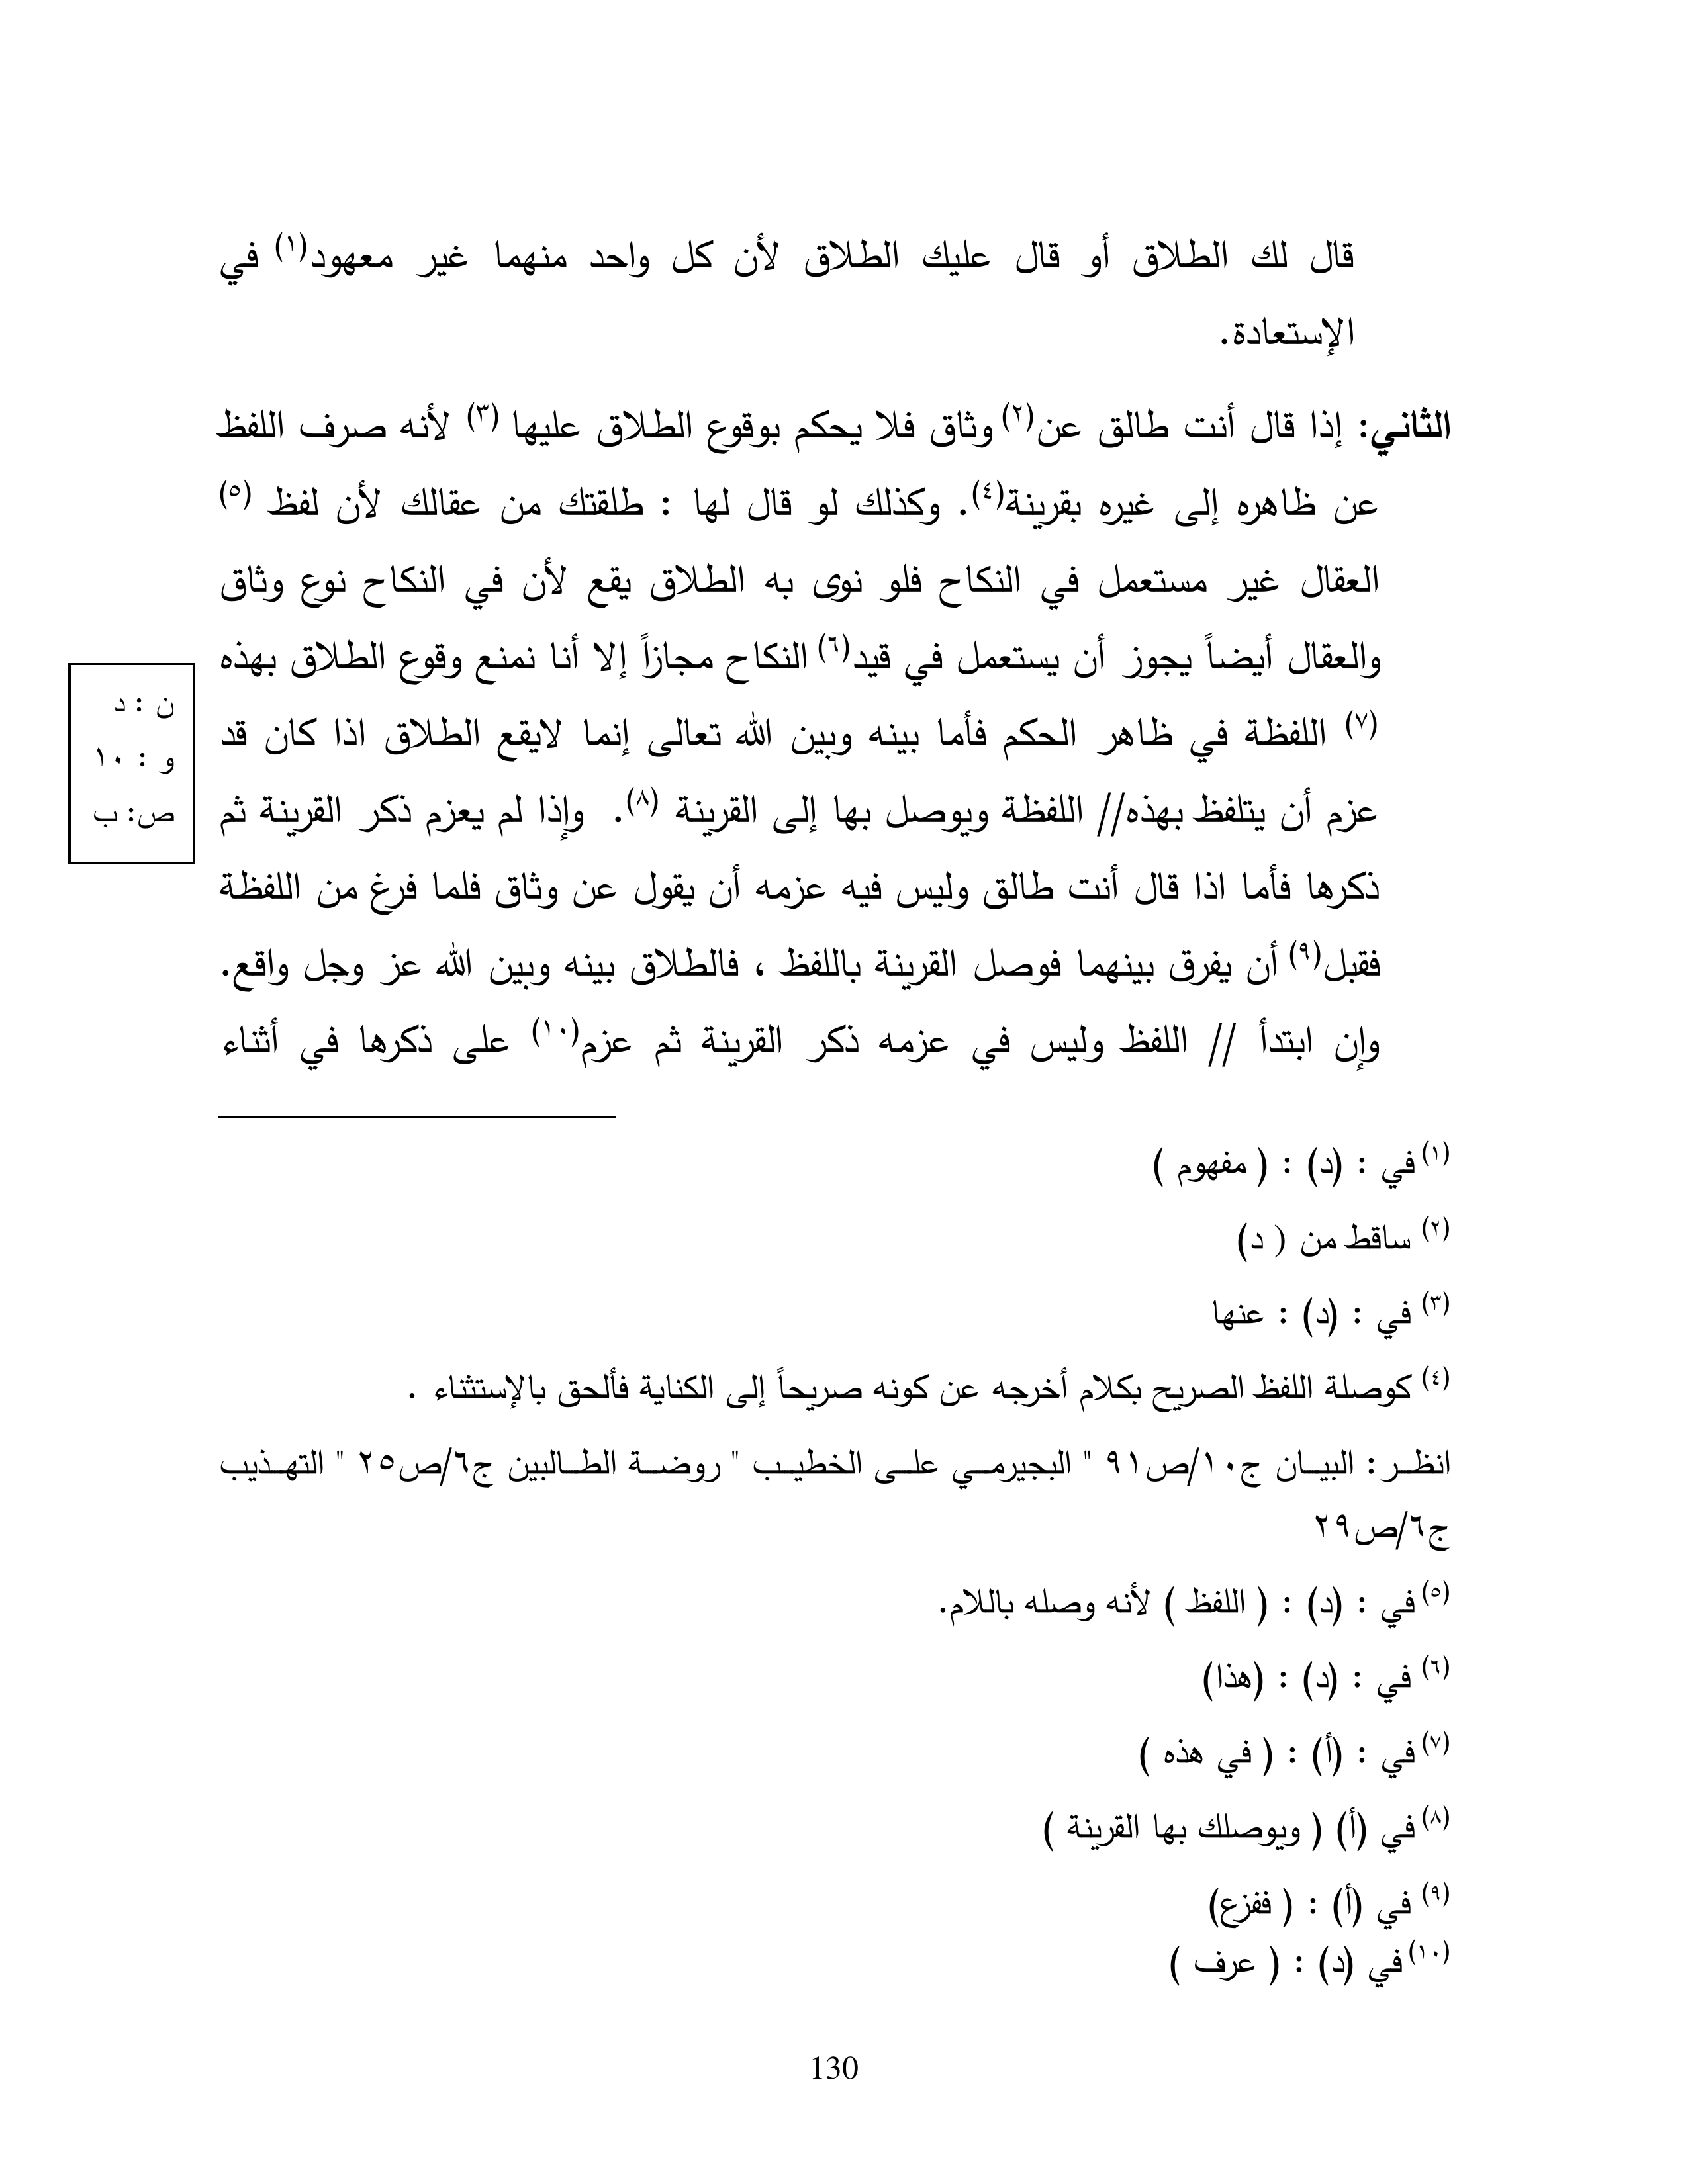 قال لك الطلاق أو قال عليك الطلاق لأن كل واحد منهما غير معهود(١) في
الإستعادة.
الثاني: إذا قال أنت طالق عن(٢) وثاق فلا يحكم بوقوع الطلاق عليها (٣) لأنه صرف اللفظ
عن ظاهره إلى غيره بقرينة(٤). وكذلك لو قال لها : طلقتك من عقالك لأن لفظ (٥)
العقال غير مستعمل في النكاح فلو نوى به الطلاق يقع لأن في النكاح نوع وثاق
والعقال أيضاً يجوز أن يستعمل في قيد(٦) النكاح مجازاً إلا أنا نمنع وقوع الطلاق بهذه
(٧) اللفظة في ظاهر الحكم فأما بينه وبين الله تعالى إنما لايقع الطلاق اذا كان قد
عزم أن يتلفظ بهذه// اللفظة ويوصل بها إلى القرينة (٨). وإذا لم يعزم ذكر القرينة ثم
ذكرها فأما اذا قال أنت طالق وليس فيه عزمه أن يقول عن وثاق فلما فرغ من اللفظة
فقبل(٩) أن يفرق بينهما فوصل القرينة باللفظ ، فالطلاق بينه وبين الله عز وجل واقع.
وإن ابتدأ // اللفظ وليس في عزمه ذكر القرينة ثم عزم(١٠) على ذكرها في أثناء
ن : د
و : ١٠
ص: ب
(١) في : (د) : ( مفهوم )
(٢) ساقط من ( د)
(٣) في : (د) : عنها
(٤) كوصلة اللفظ الصريح بكلام أخرجه عن كونه صريحاً إلى الكناية فألحق بالإستثناء .
انظر : البيان ج١٠/ص٩١ " البجيرمي على الخطيب " روضة الطالبين ج٦/ص٢٥ " التهذيب
ج٦/ص٢٩
(٥) في : (د) : ( اللفظ ) لأنه وصله باللام.
(٦) في : (د) : (هذا)
(٧) في : (أ) : ( في هذه )
(٨) في (أ) ( ويوصلك بها القرينة )
(٩) في (أ) : ( ففزع)
(١٠) في (د) : ( عرف )
130